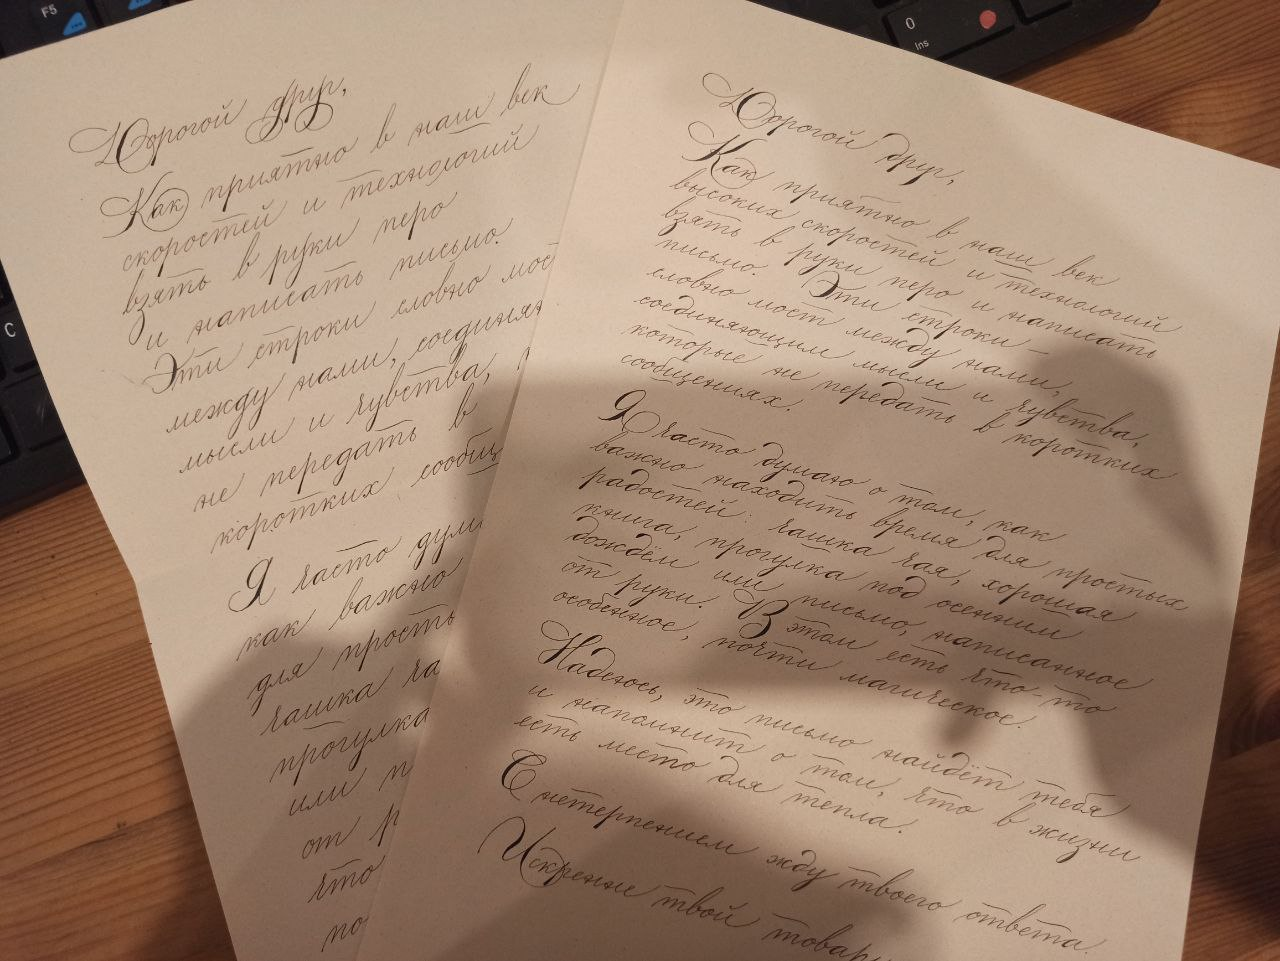 F5
0
Ins
C
Дорогой друг,
Как приятно в наш век
скоростей и технологий
взять в руки перо
и написать письмо.
Эти строки словно мос
между нами, соединя
мысли и чувства,
не передать в
коротких сообщ
Я часто дум
как важно
для просты
чашка ча
прогулка
или п
от р
что
по
Дорогой друг,
Как приятно в наш век
высоких скоростей и технологий
взять в руки перо и написать
письмо. Эти строки –
словно мост между нами,
соединяющим мысли и чувства,
которые не передать в коротких
сообщениях.
Я часто думаю о том, как
важно находить время для простых
радостей: чашка чая, хорошая
книга, прогулка под осенним
дождём или письмо, написанное
от руки. В этом есть что-то
особенное, почти магическое.
Надеюсь, это письмо найдёт тебя
и напомнит о том, что в жизни
есть место для тепла.
С нетерпением жду твоего ответа.
Искренне твой товар